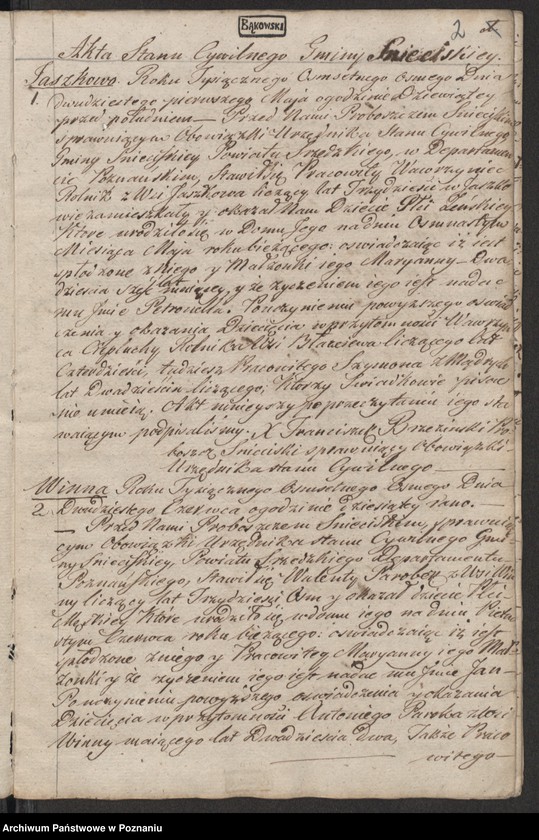 BĄKOWSKI
2
Akta Stanu Cywilnego Gminy Snieciskiey.
Jaszkowo. Roku Tysiącznego Osmsetnego Osmego Dnia
1. Dwudziestego pierwszego Maja o godzinie Dziewiątey
przed południem — Przed Nami Proboszczem Snieciskim
sprawuiącym Obowiązki Urzędnika Stanu Cywilnego
Gminy Snieciskiey Powiatu Szredzkiego, w Departamen
cie Poznańskim, Stawił się Pracowity Wawrzyniec
Rolnik z Wsi Jaszkowa liczący lat Trzydzieści w Jaszko
wie zamieszkały y okazał Nam Dziecie Płci Zenskiey
Ktore urodziło się w Domu Jego na dniu Osmnastym
Miesiąca Maja roku bieżącego: oswiadczaiąc iż iest
spłodzone z Niego y Małżonki iego Maryanny Dwa
dziescia Szesc lat maiącey, y że życzeniem iego iest nadac
mu Jmie Petronella. Po uczynieniu powyższego oswiad
czenia y okazania Dziecięcia w przytomnosci Wawrzyn
ca Rolnika z Wsi liczącego lat
Czterdziesci, tudziesz Pracowitego Szymona z
lat Dwadziescia liczącego, Ktorzy Swiadkowie pisac
nie umieią. Akt ninieyszy po przeczytaniu iego sta
waiącym podpisalismy. X Franciszek Brzezinski Pro
boszcz Snieciski sprawuiący Obowiązki
Urzędnika Stanu Cywilnego
Winna Roku Tysiącznego Osmsetnego Osmego Dnia
2 Dwudziestego Czerwca o godzinie dziesiątey rano.
— Przed Nami Proboszczem Snieciskim, sprawuią
cym Obowiązki Urzędnika Stanu Cywilnego Gmi
ny Snieciskiey Powiatu Szredzkiego Departamentu
Poznańskiego, Stawił się Walenty Parobek z Wsi Win
ny liczący lat Trzydziesci Osm y okazał dziecie Płci
Męskiey Ktore urodziło się w domu iego na dniu Pietna
stym Czerwca roku bieżącego: oswiadczaiąc iż iest
spłodzone z niego y Pracowitey Maryanny iego Mał
żonki y że życzeniem iego iest nadac mu Jmie Jan
Po uczynieniu powyższego oswiadczenia y okazania
Dziecięcia w przytomnosci Antoniego Parobka z Wsi
Winny maiącego lat Dwadziescia dwa, Także Praco
witego
Archiwum Państwowe w Poznaniu